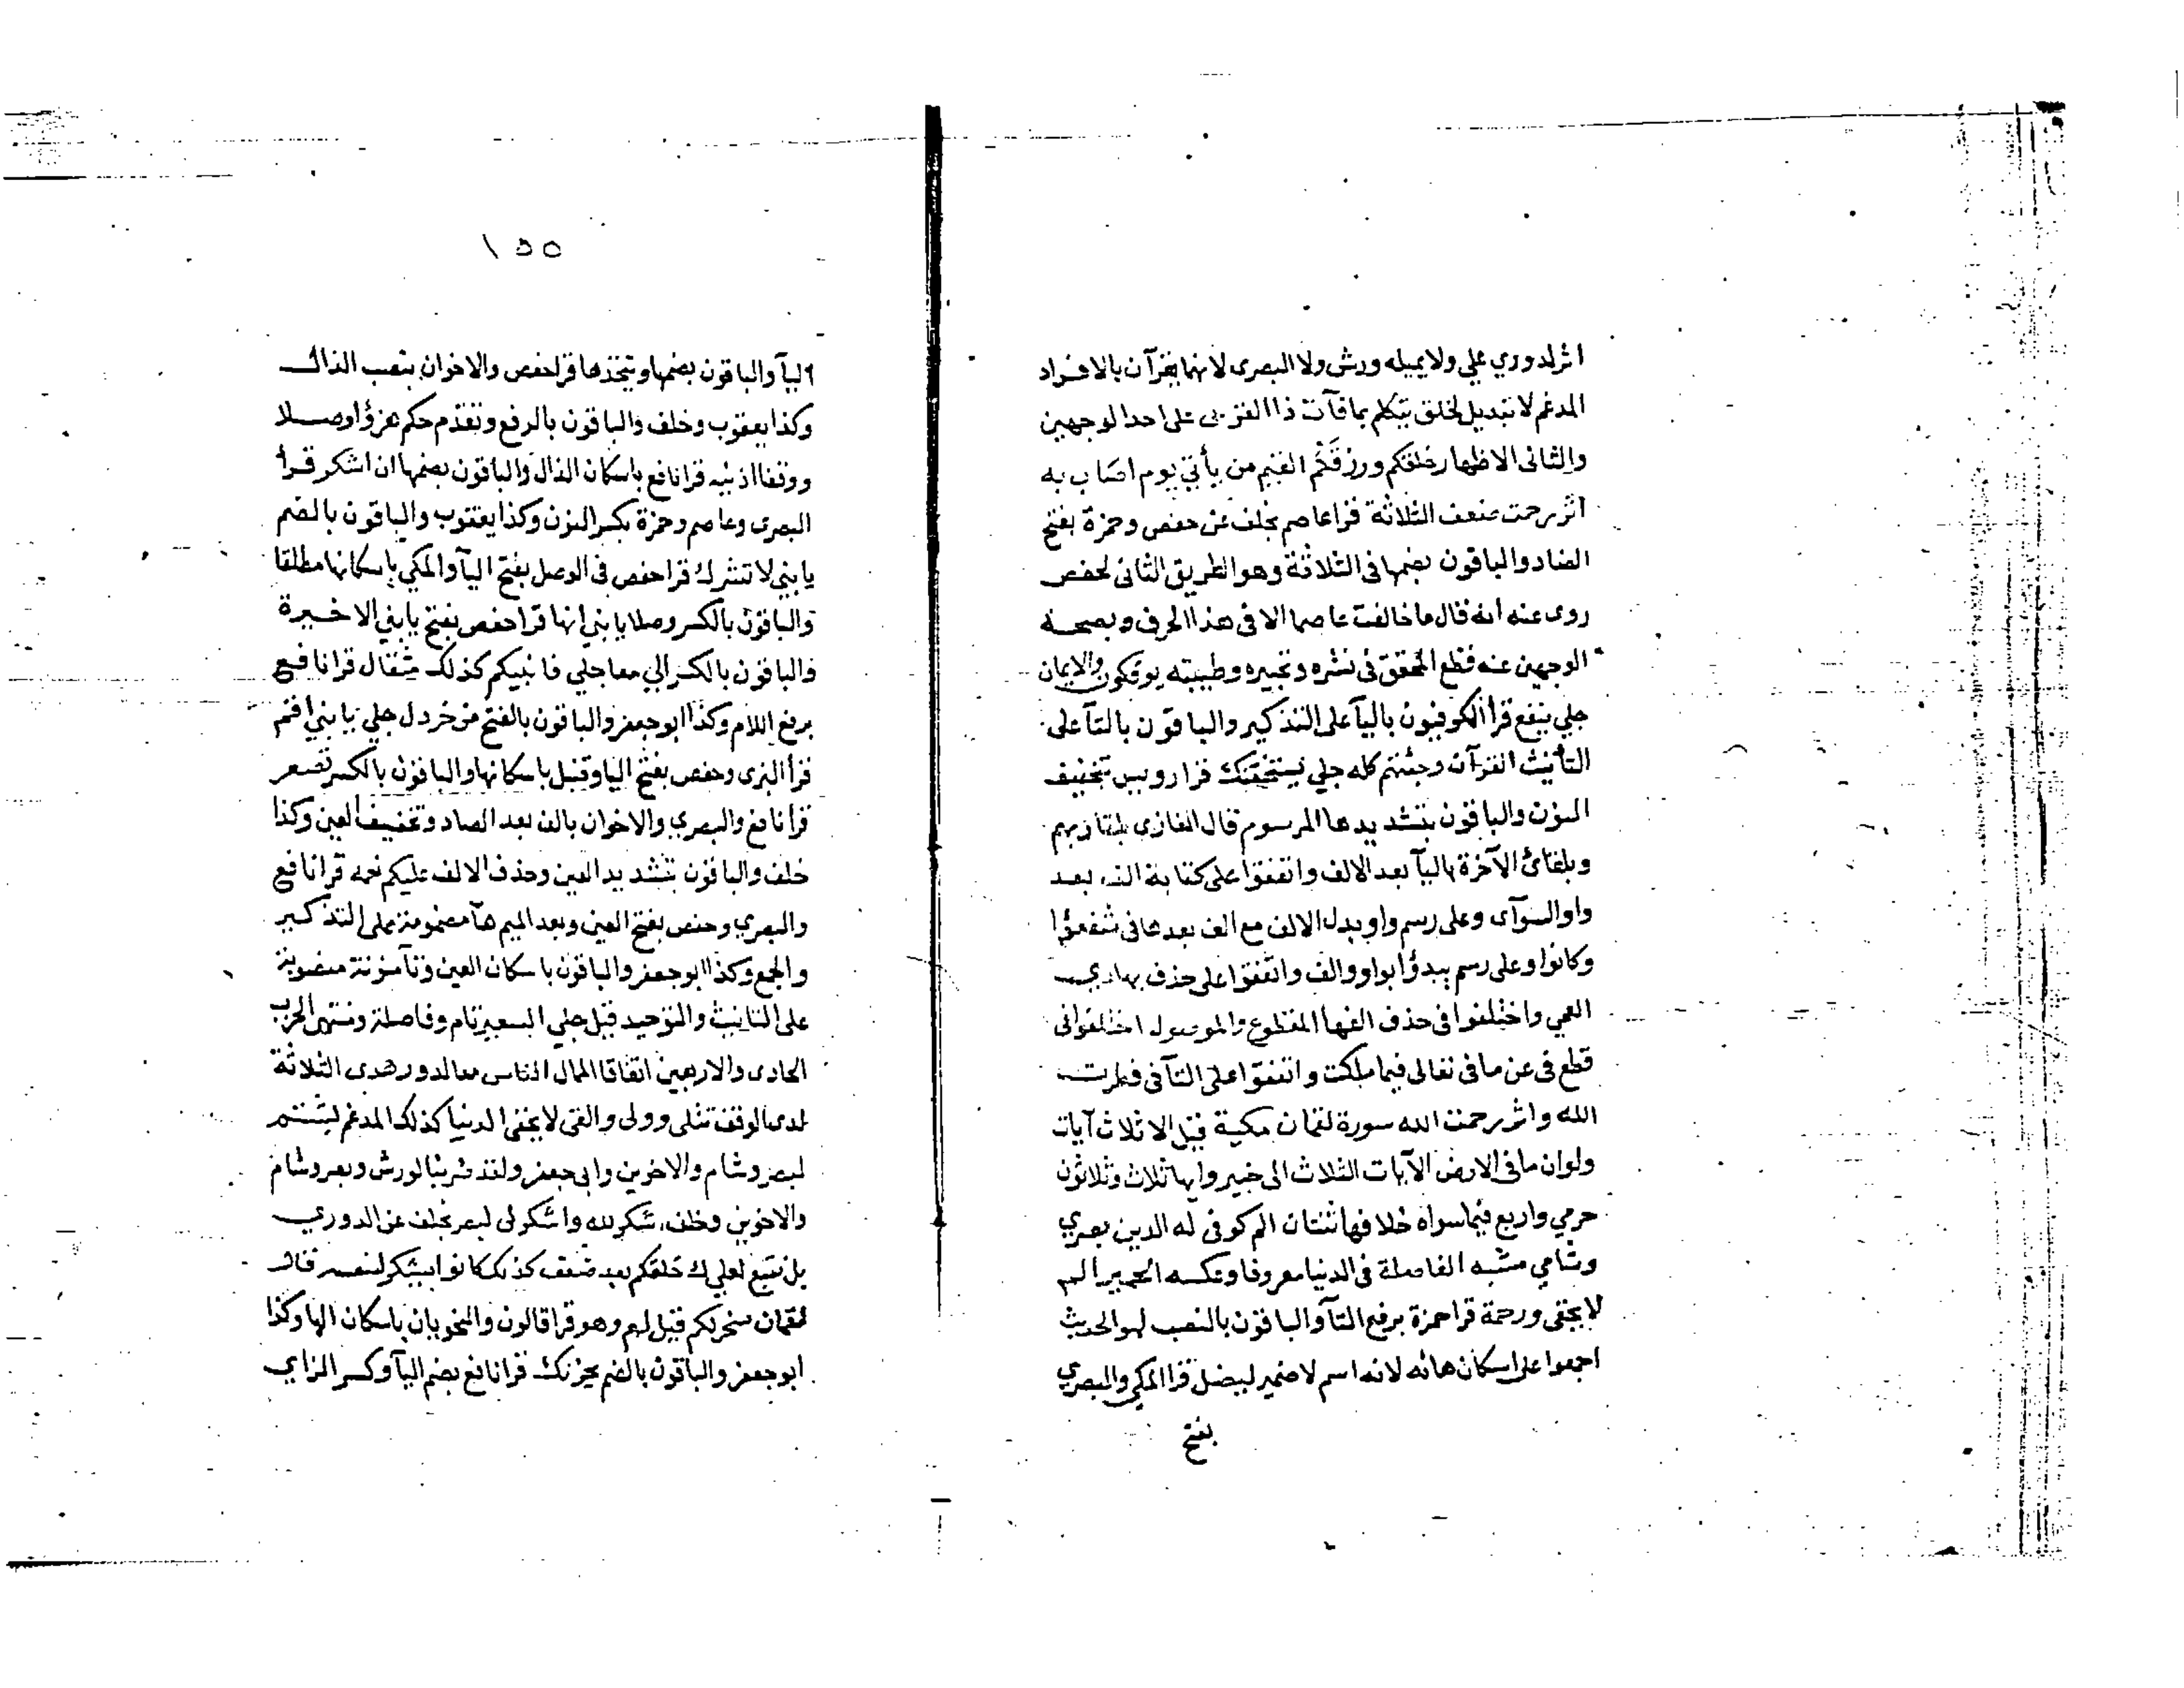 اثر لدوري علي ولا يميله ورش ولا البصرى لانهما يقرآن بالافراد
المدغم لا تبديل لخلق يتكلم بما فآت ذا القربى على احد الوجهين
والثانى الاظهار خلقكم ورزقكم القيم من يأتي يوم اصاب به
اثر رحمت ضعف الثلاثة قرا عاصم بخلف عن حفص وحمزة بفتح
الضاد والباقون بضمها فى الثلاثة وهو الطريق الثانى لحفص
روى عنه انه قال ما خالفت عاصما الا فى هذا الحرف وبصحة
الوجهين عنه قطع المحقق فى نشره وتحبيره وطيبته يوفكون والايمان
جلي ينفع قرأ الكوفيون باليآ على التذكير والباقون بالتآ على
التأنيث القرآن وجئتهم كله جلي يستخفنك قرا رويس بتخفيف
النون والباقون بتشديدها المرسوم قال الغازى بلقآ ربهم
وبلقائ الآخرة باليآ بعد الالف واتفقوا على كتابة الف بعد
واو السوآى وعلى رسم واو بدل الالف مع الف بعدها فى شفعؤا
وكانوا وعلى رسم يبدؤا بواو والف واتفقوا على حذف بهادي
العمي واختلفوا فى حذف الفها المقطوع والموصول اختلفوا فى
قطع فى عن ما فى تعالى فيما ملكت واتفقوا على التآ فى فطرت
الله واثر رحمت الله سورة لقمان مكية قيل الا ثلاث آيات
ولو ان ما فى الارض الآيات الثلاث الى خبير وايها ثلاث وثلاثون
حرمي واربع فيما سواه خلافها ثنتان الم كوفى له الدين بصري
وشامي مشبه الفاصلة فى الدنيا معروفا وعكسه الحمير الم
لا يخفى ورحمة قرا حمزة برفع التآ والباقون بالنصب لهو الحديث
اجمعوا على اسكان هائه لانه اسم لا ضمير ليضل قرا المكي والبصري
بفتح
١٥٥
اليآ والباقون بضمها ويتخذها قرا حفص والاخوان بنصب الذال
وكذا يعقوب وخلف والباقون بالرفع وتقدم حكم هزؤا وصلا
ووقفا اذنيه قرا نافع باسكان الذال والباقون بضمها ان اشكر قرأ
البصرى وعاصم وحمزة بكسر النون وكذا يعقوب والباقون بالضم
يا بني لا تشرك قرا حفص فى الوصل بفتح اليآ والمكي باسكانها مطلقا
والباقون بالكسر وصلا يا بني انها قرا حفص بفتح يا بني الاخيرة
والباقون بالكسر الي معا جلي فانبيكم كذلك مثقال قرا نافع
برفع اللام وكذا ابو جعفر والباقون بالفتح من خردل جلي يا بني اقم
قرأ البزى وحفص بفتح اليا وقنبل باسكانها والباقون بالكسر تصعر
قرا نافع والبصري والاخوان بالف بعد الصاد وتخفيف العين وكذا
خلف والباقون بتشديد العين وحذف الالف عليكم نعمه قرا نافع
والبصري وحفص بفتح العين وبعد الميم هآ مضمومة على التذكير
والجمع وكذا ابو جعفر والباقون باسكان العين وتآ منونة منصوبة
على التانيث والتوحيد قيل جلي السعير تام وفاصلة ومنتهى الحزب
الحادى والاربعين اتفاقا الممال الناس معا لدور هدى الثلاثة
لدى الوقف تتلى وولى والقى لا يخفى الدنيا كذلك المدغم لبثتم
لبصر وشام والاخوين وابى جعفر ولقد ضربنا لورش وبصر وشام
والاخوين وخلف، اشكر لله واشكر لى لبصر بخلف عن الدوري
بل نتبع لعلي ك خلقكم بعد ضعف كذلك كانوا يشكر لنفسه قال
لقمان سخر لكم قيل لهم وهو قرا قالون والنحويان باسكان الها وكذا
ابو جعفر والباقون بالضم يحزنك قرا نافع بضم اليآ وكسر الزاي